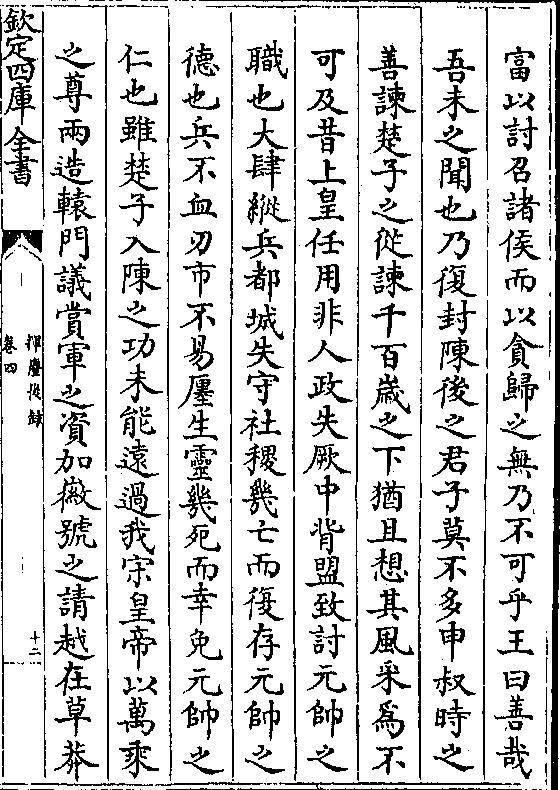 富以討召諸侯而以貪歸之無乃不可乎王曰善哉
吾未之聞也乃復封陳後之君子莫不多申叔時之
善諫楚子之從諫千百歲之下猶且想其風采為不
可及昔上皇任用非人政失厥中背盟致討元帥之
職也大肆縱兵都城失守社稷幾亡而復存元帥之
德也兵不血刃市不易廛生靈幾死而幸免元帥之
仁也雖楚子入陳之功未能遠過我宋皇帝以萬乘
之尊兩造轅門議賞軍之資加徽號之請越在草莽
欽定四庫全書
揮麈後錄
卷四
十二